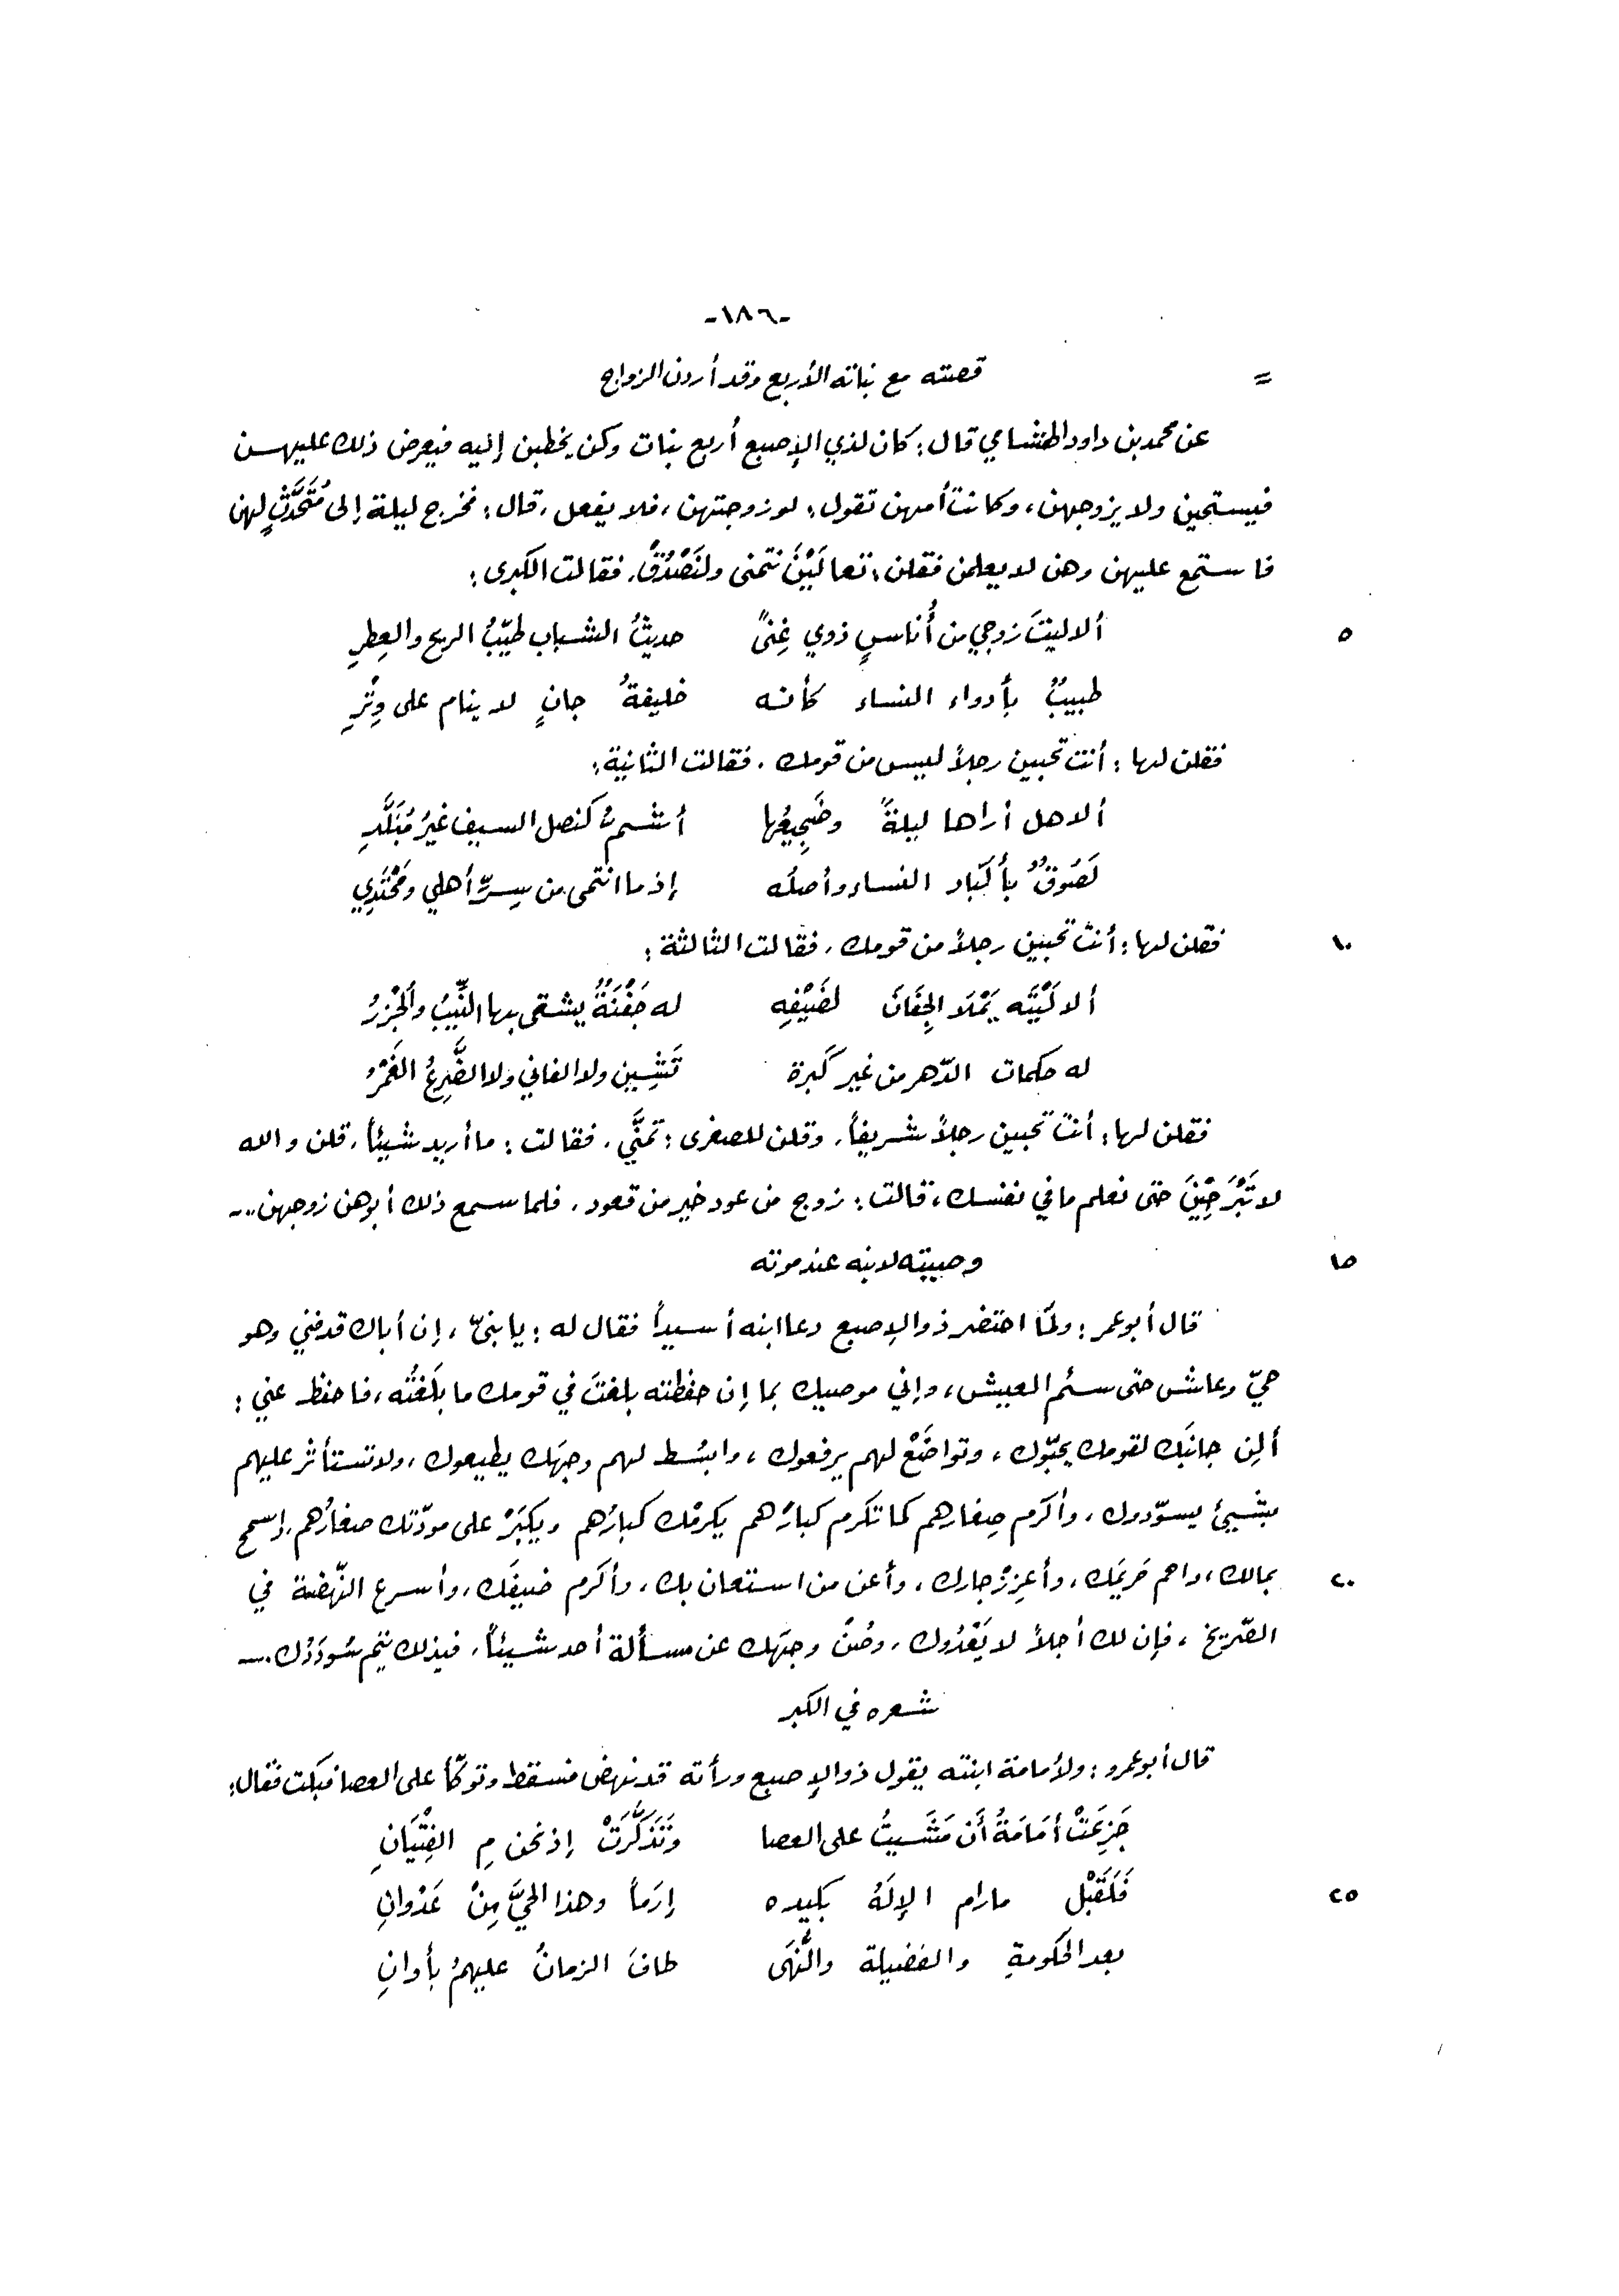 -١٨٦-
= قصته مع بناته الأربع وقد أردن الزواج
عن محمد بن داود الهشامي قال: كان لذي الإصبع أربع بنات وكن يخطبن إليه فيعرض ذلك عليهن
فيستحين ولا يزوجهن، وكانت أمهن تقول: لو زوجتهن، فلا يفعل، قال: فخرج ليلة إلى مُتَحَدَّثٍ لهن
فاستمع عليهن وهن لا يعلمن فقلن: تعالَيْنَ نتمنى ولنَصْدُقْ. فقالت الكبرى:
٥ ألا ليتَ زوجي من أُناسٍ ذوي غِنىً حديثُ الشباب طيّبُ الريح والعِطرِ
طبيبٌ بأدواء النساء كأنه خليفةُ جانٍ لا ينام على وِتْرِ
فقلن لها: أنت تحبين رجلاً ليس من قومك. فقالت الثانية:
ألا هل أراها ليلةً وضَجِيعُها أشمُّ كنصل السيف غيرُ مُبَلَّدِ
لَصُوقٌ بأكبَاد النساء وأصله إذ ما انتمى من سِرِّ أهلي ومَحْتِدِي
١٠ فقلن لها: أنت تحبين رجلاً من قومك. فقالت الثالثة:
ألا لَيْتَه يَمْلَا الجِفَانَ لضَيْفِهِ له جَفْنَةٌ يشقى بها النِّيبُ والجُزرُ
له حكمات الدّهر من غير كَبرة تَشِين ولا الفاني ولا الضَّرِعُ الغَمْرُ
فقلن لها: أنت تحبين رجلاً شريفاً. وقلن للصغرى: تمنَّي. فقالت: ما أريد شيئاً. قلن والله
لا تَبْرَحِيْنَ حتى نعلم ما في نفسك، قالت: زوج من عود خير من قعود. فلما سمع ذلك أبوهن زوجهن..-
١٥ وصيته لابنه عند موته
قال أبو عمر: ولمّا احتضر ذو الإصبع دعا ابنه أسيداً فقال له: يا بنيّ، إن أباك قد فني وهو
حيّ وعاش حتى سئم العيش، وإني موصيك بما إن حفظته بلغتَ في قومك ما بلَغتُه، فاحفظ عني:
ألِن جانبَك لقومك يحبّوك، وتواضَعْ لهم يرفعوك، وابسُط لهم وجهَك يطيعوك، ولا تستأثر عليهم
بشيئ يسوّدوك، وأكرم صِغارهم كما تكرم كبارَهم يكرمْك كبارُهم ويكبَرْ على مودّتك صغارُهم، إسمح
٢٠ بمالك، واحم حَريَمك، وأعزِزْ جارك، وأعن من استعان بك، وأكرم ضيفَك، وأسرع النّهضة في
الصّريخ، فإن لك أجلاً لا يَعْدُوك، وصُنْ وجهَك عن مسألة أحد شيئاً، فبذلك يتم سُودَدُك.--
شعره في الكبر
قال أبو عمرو: ولأمامة ابنته يقول ذو الإصبع ورأته قد نهض فسقط وتوكّأ على العصا فبكت فقال:
جَزِعَتْ أمَامَةُ أن مَشَيتُ على العصا وتَذَكَّرَتْ إذ نحن مِ الفِتْيَانِ
٢٥ فَلَقَبْل ما رام الإلَهُ بكيده إرَماً وهذا الحيَّ مِنْ عَدْوانِ
بعد الحكومةِ والفضيلة والنُّهَى طافَ الزمانُ عليهمُ بأوانِ